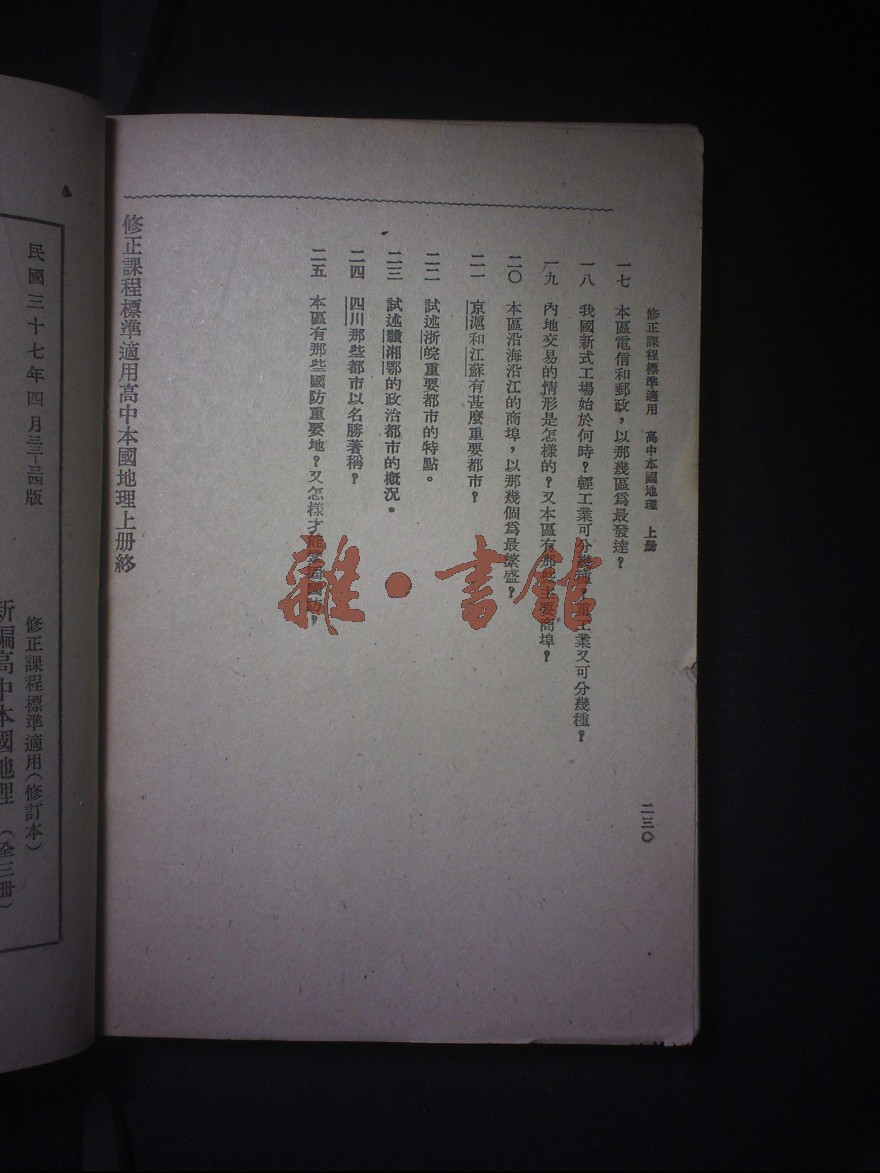 修正課程標準適用　高中本國地理　上册
二三〇
一七　本區電信和郵政，以那幾區爲最發達？
一八　我國新式工場始於何時？輕工業可分幾種？重工業又可分幾種？
一九　內地交易的情形是怎樣的？又本區有那些主要商埠？
二〇　本區沿海沿江的商埠，以那幾個爲最繁盛？
二一　京滬和江蘇有甚麼重要都市？
二二　試述浙皖重要都市的特點。
二三　試述贛湘鄂的政治都市的概況。
二四　四川那些都市以名勝著稱？
二五　本區有那些國防重要地？又怎樣才能鞏固國防？
修正課程標準適用高中本國地理上册終
雜·書館
民國三十七年四月三三—三四版
修正課程標準適用（修訂本）
新編高中本國地理（全三册）